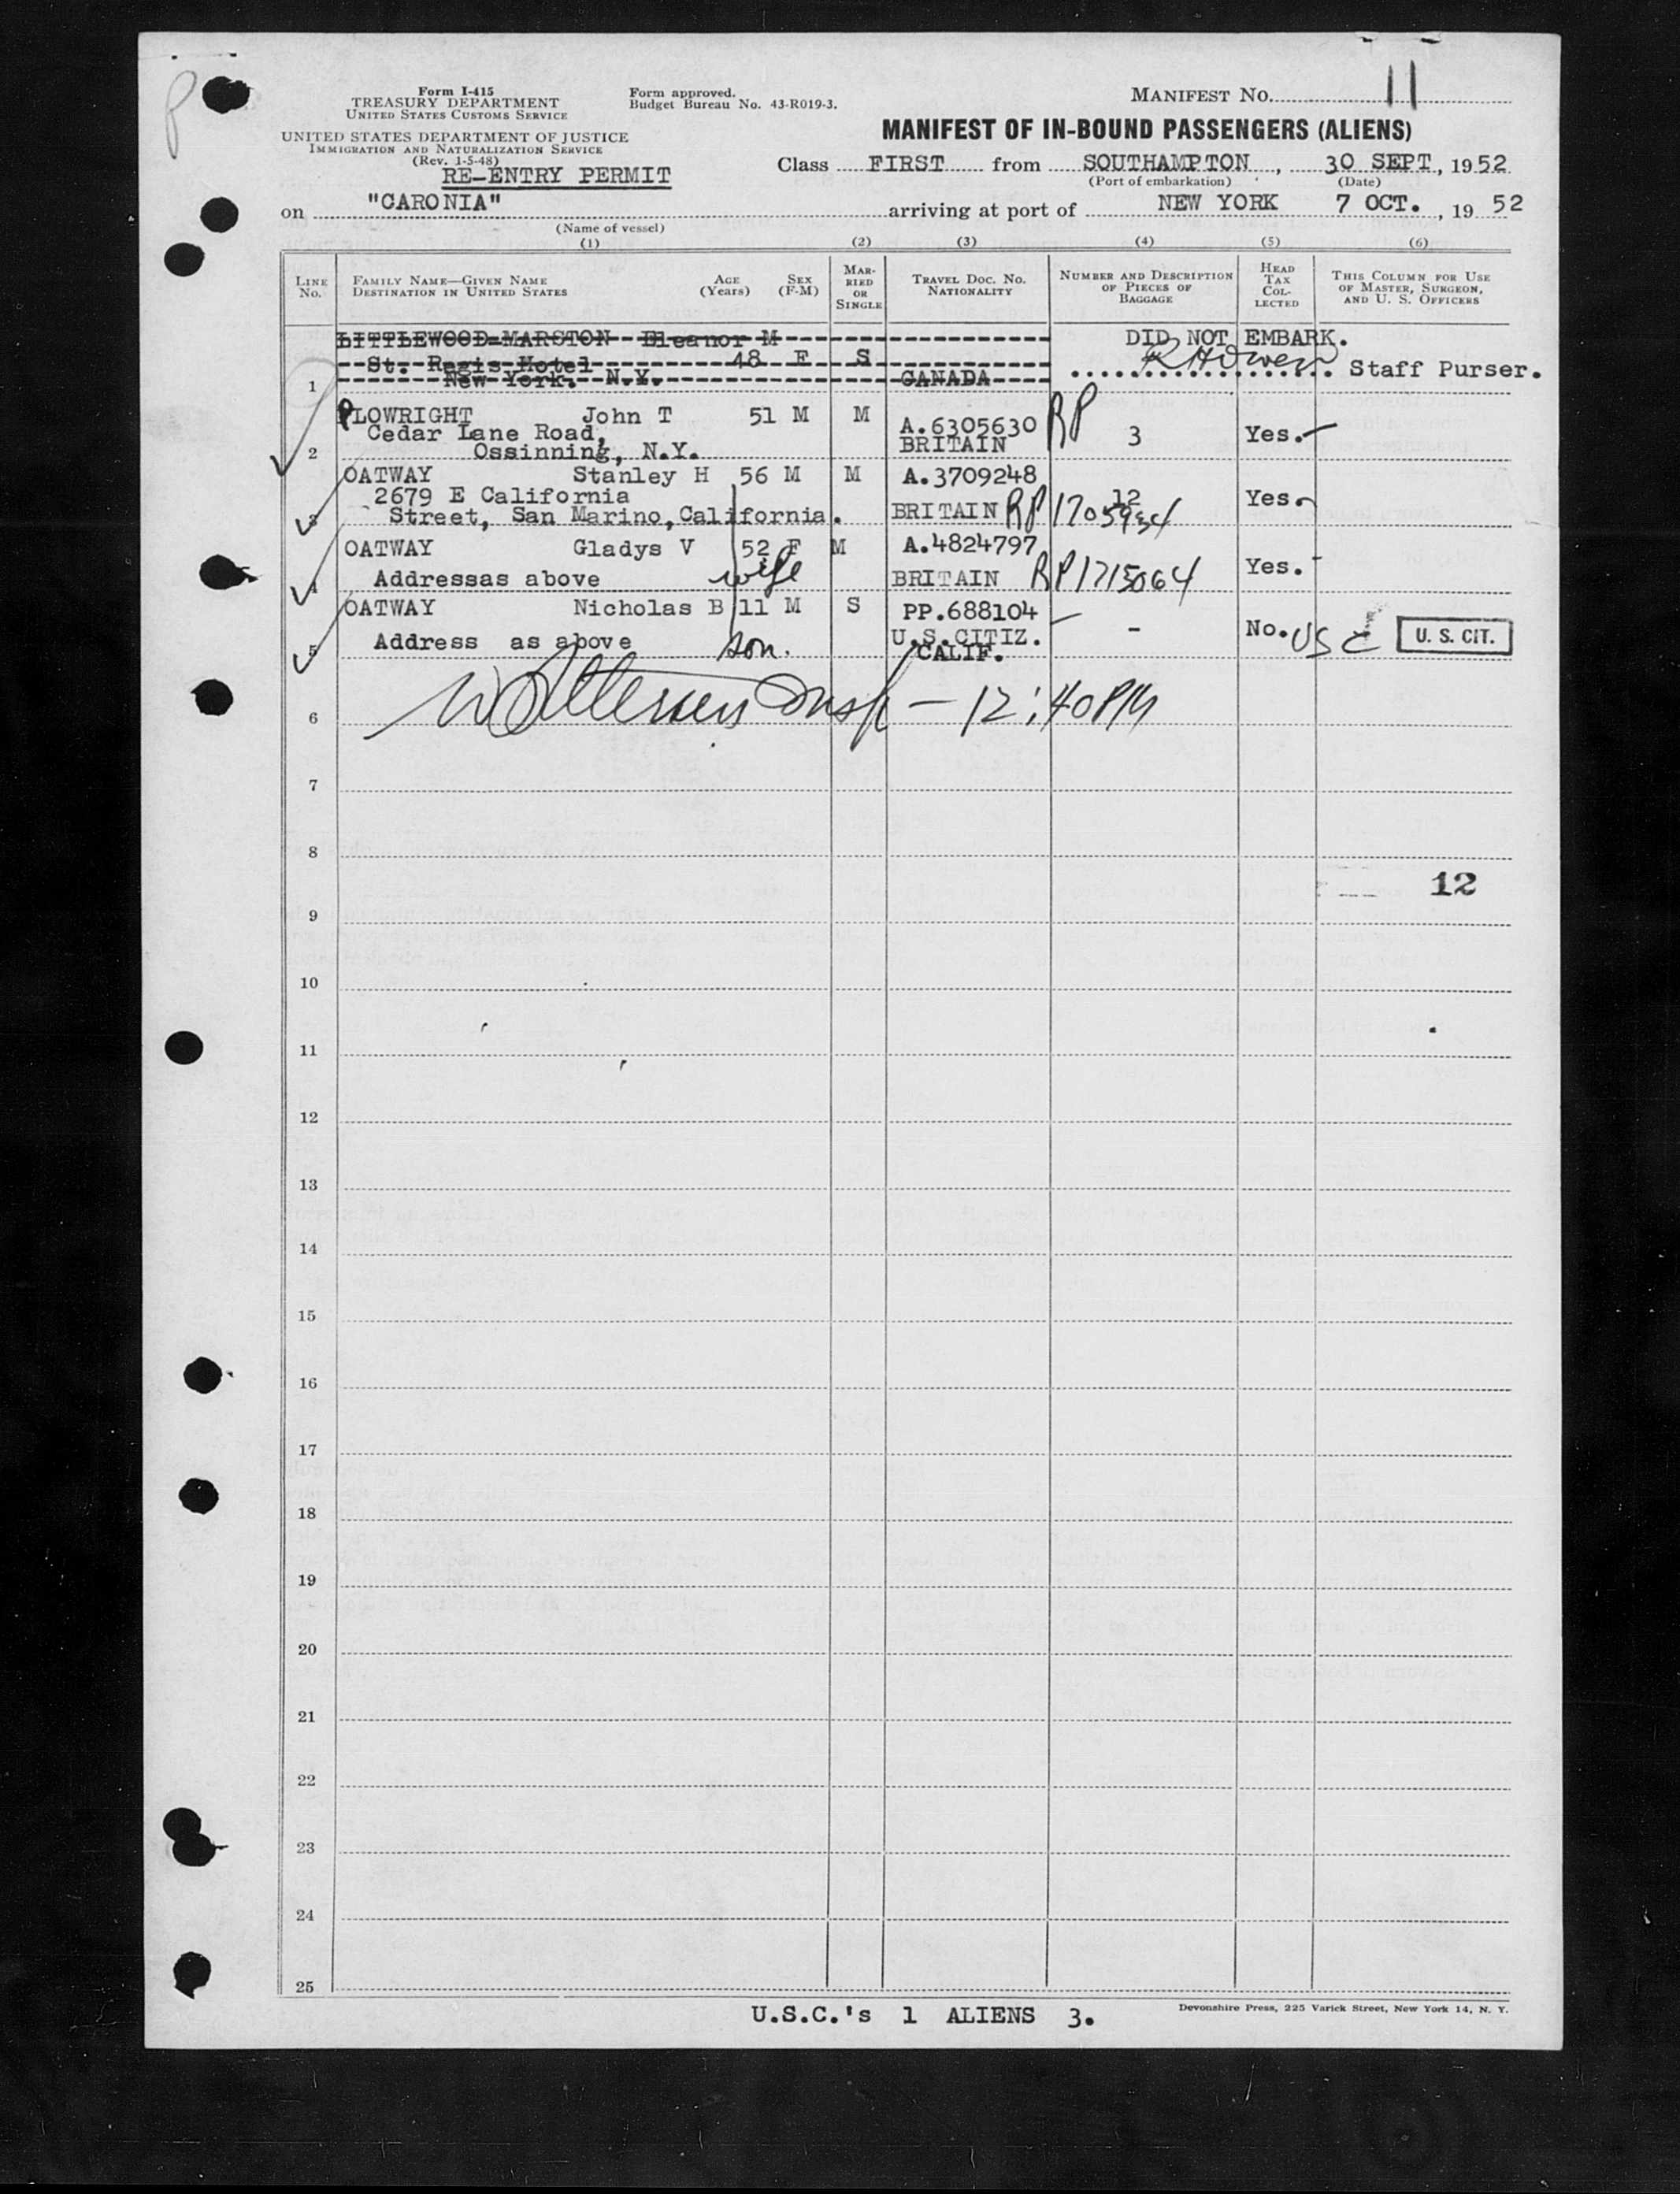 Form I-415
TREASURY DEPARTMENT
UNITED STATES CUSTOMS SERVICE
UNITED STATES DEPARTMENT OF JUSTICE
IMMIGRATION AND NATURALIZATION SERVICE
(Rev. 1-5-48)
RE-ENTRY PERMIT
Form approved.
Budget Bureau No. 43-R019-3.
MANIFEST NO. 11
MANIFEST OF IN-BOUND PASSENGERS (ALIENS)
Class FIRST from SOUTHAMPTON, 30 SEPT, 1952
(Port of embarkation) (Date)
on "CARONIA" arriving at port of NEW YORK 7 OCT., 19 52
(Name of vessel)
(1) (2) (3) (4) (5) (6)
LINE NO.
FAMILY NAME—GIVEN NAME
DESTINATION IN UNITED STATES
AGE (Years)
SEX (F-M)
MARRIED OR SINGLE
TRAVEL DOC. NO. NATIONALITY
NUMBER AND DESCRIPTION OF PIECES OF BAGGAGE
HEAD TAX COLLECTED
THIS COLUMN FOR USE OF MASTER, SURGEON, AND U. S. OFFICERS
LITTLEWOOD-MARSTON Eleanor M DID NOT EMBARK.
St. Regis Hotel 48 F S
1 New York. N.Y. CANADA Staff Purser.
PLOWRIGHT John T 51 M M A.6305630 RP
Cedar Lane Road, BRITAIN 3 Yes.
2 Ossinning, N.Y.
OATWAY Stanley H 56 M M A.3709248
2679 E California BRITAIN RP 12 Yes.
3 Street, San Marino, California.
OATWAY Gladys V 52 F M A.4824797
4 Address as above wife BRITAIN RP 1715064 Yes.
OATWAY Nicholas B 11 M S PP.688104
5 Address as above son. U.S.CITIZ. - No. USC U. S. CIT.
CALIF.
6 Insp - 12:40 PM
7
8
12
9
10
11
12
13
14
15
16
17
18
19
20
21
22
23
24
25
U.S.C.'s 1 ALIENS 3.
Devonshire Press, 225 Varick Street, New York 14, N. Y.